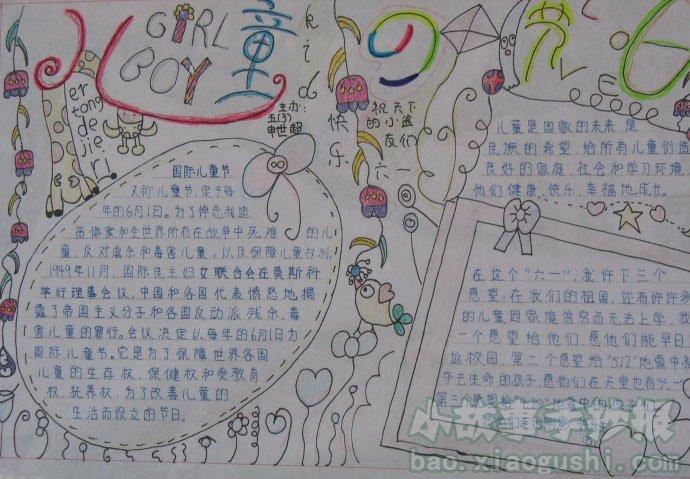 儿童の节日
GIRL
BOY
kid
LOVE
er
tong
de
jie
ri
主办:
五(3)
申世超
快乐
祝天下
的小盆
友们
六一
国际儿童节
又称儿童节,定于每
年的6月1日。为了悼念利迪
策惨案和全世界所有在战争中死难的儿
童,反对虐杀和毒害儿童,以及保障儿童权利,
1949年11月,国际民主妇女联合会在莫斯科
举行理事会议,中国和各国代表愤怒地揭
露了帝国主义分子和各国反动派残杀、毒
害儿童的罪行。会议决定以每年的6月1日为
国际儿童节。它是为了保障世界各国
儿童的生存权、保健权和受教育
权、抚养权,为了改善儿童的
生活而设立的节日。
儿童是国家的未来,是
民族的希望,给所有儿童创造
良好的家庭、社会和学习环境
他们健康、快乐、幸福地成长。
在这个“六一”,我许下三个
愿望:在我们的祖国,还有许许多
的儿童因家境贫穷而无法上学,我
一个愿望给他们,愿他们能早日
返校园。第二个愿望给“512”地震中被
夺去生命的孩子,愿他们在天堂也有“六一”
第三个愿望给
地震中的
小故事手抄报
bao.xiaogushi.com